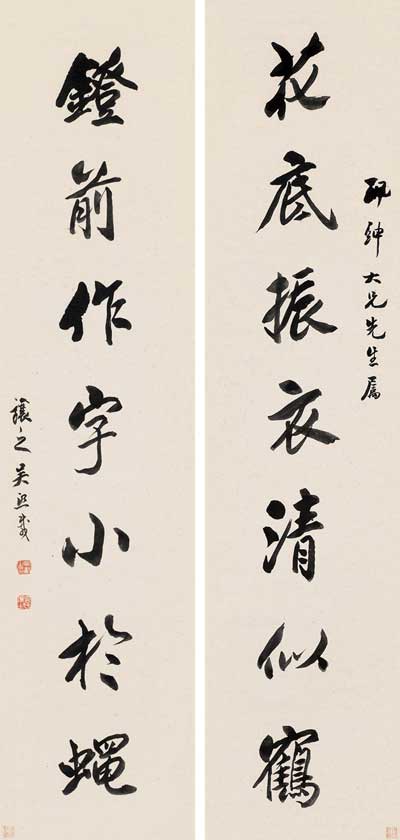 紳大兄先生屬
花底振衣清似鶴
鐙前作字小於蠅
讓之吳熙載